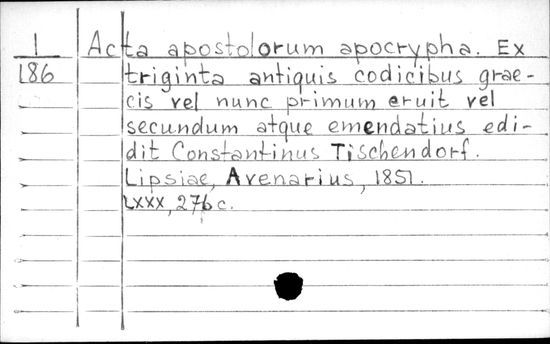 1 Acta apostolorum apocrypha. Ex
186 triginta antiquis codicibus grae-
cis vel nunc primum eruit vel
secundum atque emendatius edi-
dit Constantinus Tischendorf.
Lipsiae, Avenarius, 1851.
LXXX, 276 c.